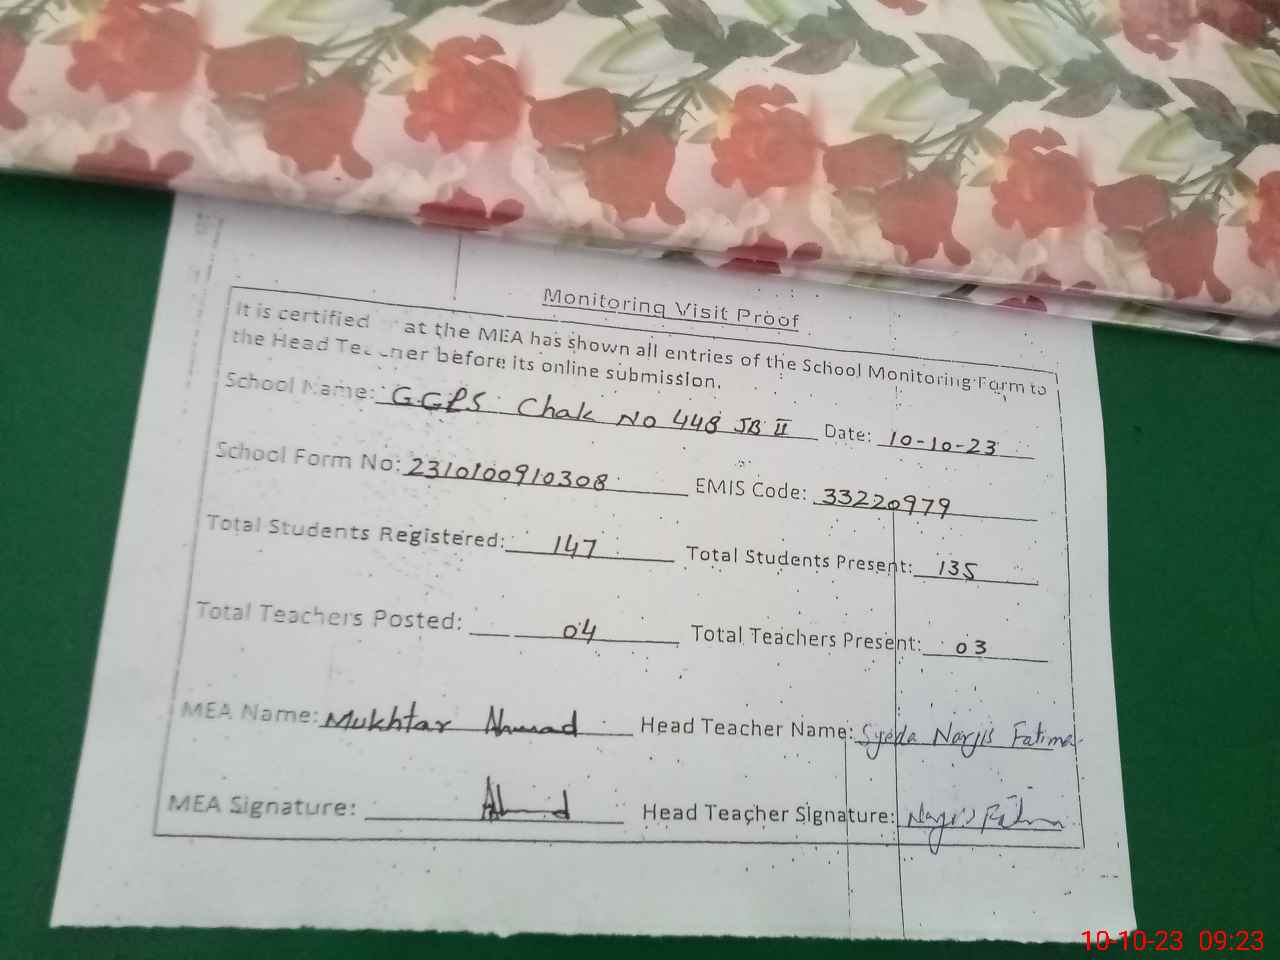 Monitoring Visit Proof
It is certified at the MEA has shown all entries of the School Monitoring Form to
the Head Teacher before its online submission.
School Name: G.GPS Chak No 448 JB II Date: 10-10-23
School Form No: 2310100910308 EMIS Code: 33220979
Total Students Registered: 147 Total Students Present: 135
Total Teachers Posted: 04 Total Teachers Present: 03
MEA Name: Mukhtar Ahmad Head Teacher Name: Syeda Narjis Fatima
MEA Signature: Ahmd Head Teacher Signature: Narjis Fatima
10-10-23 09:23